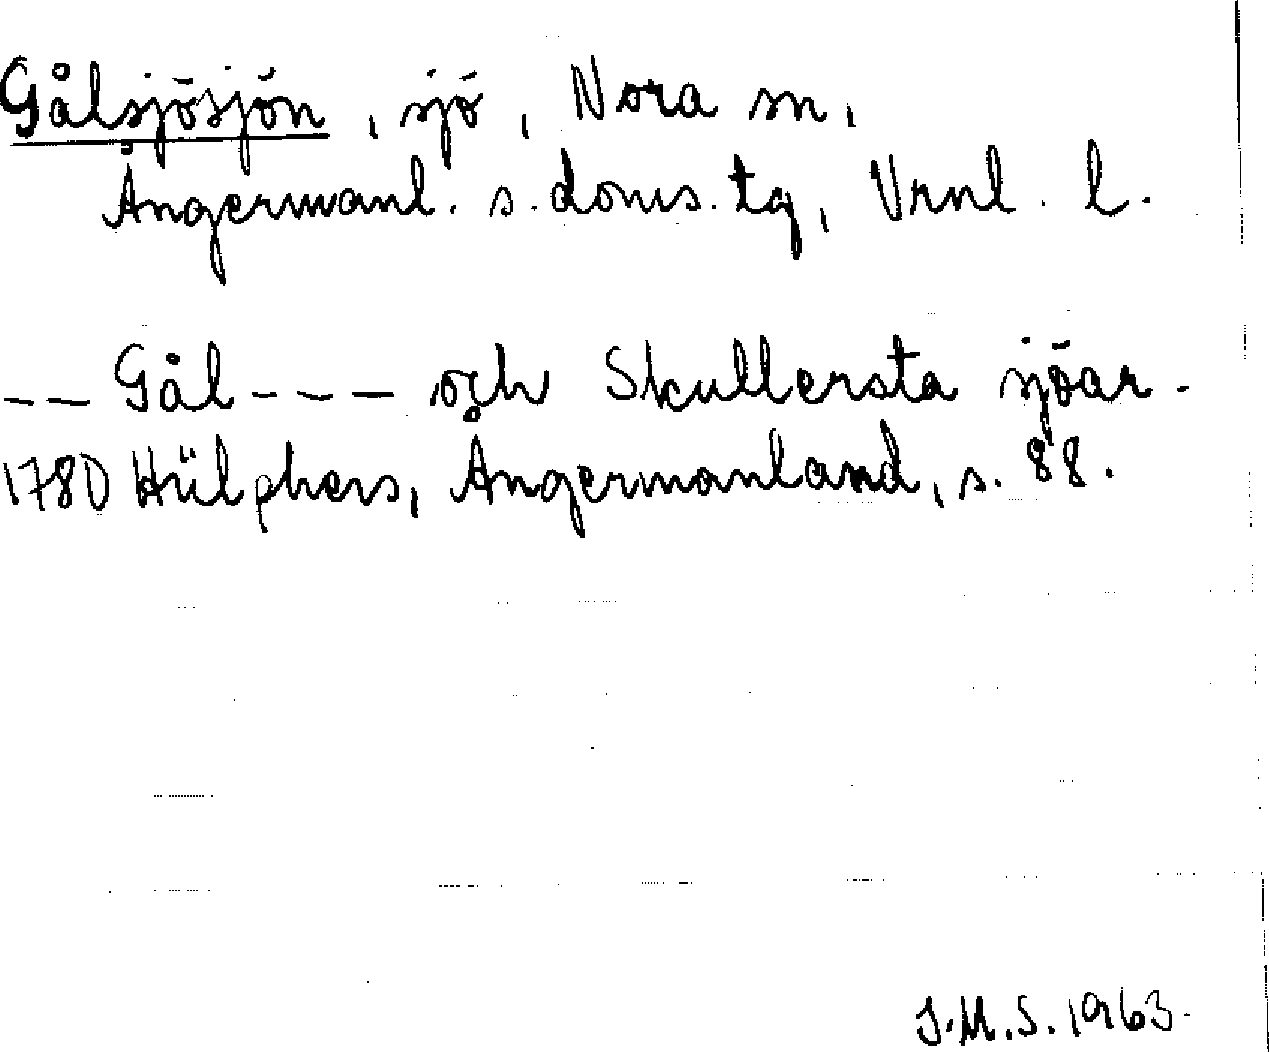 Gålsjösjön, sjö, Nora sn,
Ångermanl. s. doms. tg, Vrnl. l.
-- Gål --- och Skullersta sjöar -
1780 Hülphers, Ångermanland, s. 88.
J.M.S. 1963.